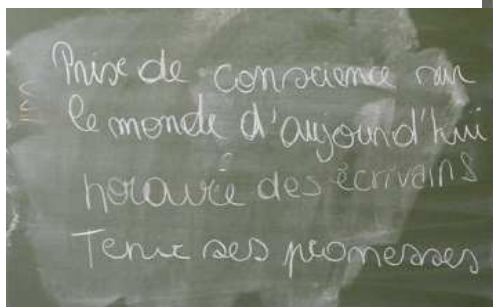 Prise de conscience sur
le monde d'aujourd'hui
horaire des écrivains
Tenir ses promesses